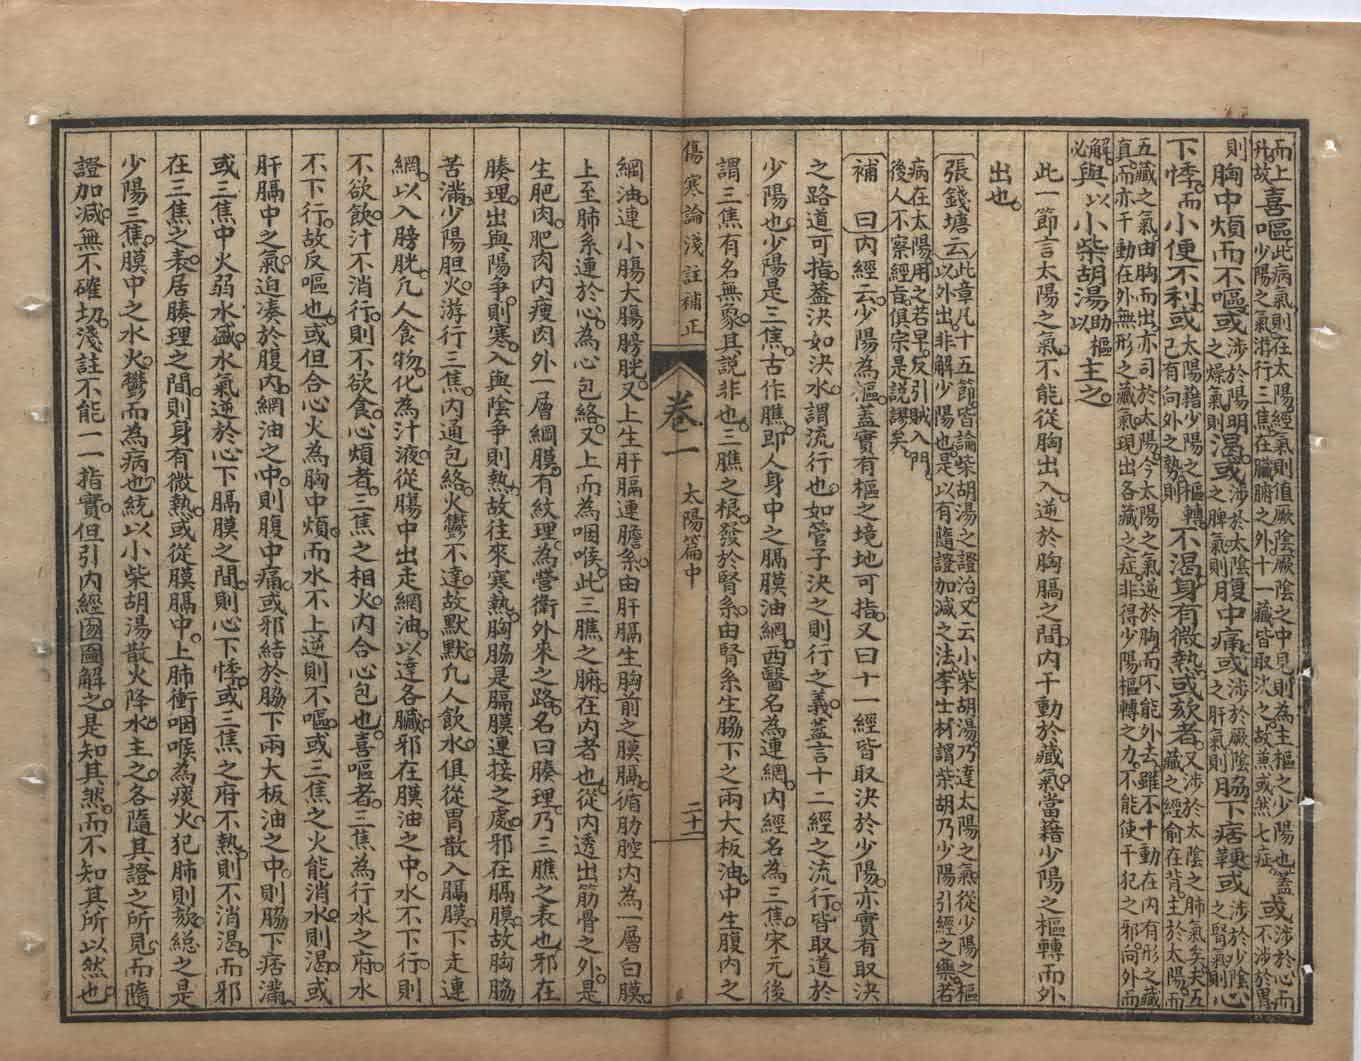 而上升故喜嘔此病氣則在太陽經氣則值厥陰厥陰之中見則為主樞之少陽也蓋少陽之氣游行三焦在臟腑之外十一藏皆取決之故兼或然七症或涉於心而不涉於胃
則胸中煩而不嘔或涉於陽明之燥氣則渴或涉於太陰之脾氣則腹中痛或涉於厥陰之肝氣則脇下痞鞕或涉於少陰之腎氣則心
下悸而小便不利或太陽藉少陽之樞轉已有向外之勢則不渴身有微熱或欬者又涉於太陰之肺氣矣夫五藏之經俞在背主於太陽而
五藏之氣由胸而出亦司於太陽今太陽之氣逆於胸而不能外去雖不干動在內有形之藏真而亦干動在外無形之藏氣現出各藏之症非得少陽樞轉之力不能使干犯之邪向外而
解必與以小柴胡湯助樞以主之
此一節言太陽之氣不能從胸出入逆於胸膈之間內干動於藏氣當藉少陽之樞轉而外
出也
張錢塘云此章凡十五節皆論柴胡湯之證治又云小柴胡湯乃達太陽之氣從少陽之樞以外出非解少陽也是以有隨證加減之法李士材謂柴胡乃少陽引經之藥若
病在太陽用之若早反引賊入門後人不察經旨俱宗是說謬矣
補曰內經云少陽為漚蓋實有樞之境地可指又曰十一經皆取決於少陽亦實有取決
之路道可指蓋決如決水謂流行也如管子決之則行之義蓋言十二經之流行皆取道於
少陽也少陽是三焦古作膲即人身中之膈膜油網西醫名為連網內經名為三焦宋元後
謂三焦有名無象其說非也三膲之根發於腎系由腎系生脇下之兩大板油中生腹內之
傷寒論淺註補正 卷一 太陽篇中 二十
網油連小膓大膓膀胱又上生肝膈連膽系由肝膈生胸前之膜膈循肋腔內為一層白膜
上至肺系連於心為心包絡又上而為咽喉此三膲之腑在內者也從內透出筋骨之外是
生肥肉肥肉內瘦肉外一層網膜有紋理為營衛外來之路名曰腠理乃三膲之表也邪在
腠理出與陽爭則寒入與陰爭則熱故往來寒熱胸脇是膈膜連接之處邪在膈膜故胸脇
苦滿少陽胆火游行三焦內通包絡火鬱不達故默默凡人飲水俱從胃散入膈膜下走連
網以入膀胱凡人食物化為汁液從膓中出走網油以達各臟邪在膜油之中水不下行則
不欲飲汁不消行則不欲食心煩者三焦之相火內合心包也喜嘔者三焦為行水之府水
不下行故反嘔也或但合心火為胸中煩而水不上逆則不嘔或三焦之火能消水則渴或
肝膈中之氣迫凑於腹內網油之中則腹中痛或邪結於脇下兩大板油之中則脇下痞滿
或三焦中火弱水盛水氣逆於心下膈膜之間則心下悸或三焦之府不熱則不消渴而邪
在三焦之表居腠理之間則身有微熱或從膜膈中上肺衝咽喉為痰火犯肺則欬總之是
少陽三焦膜中之水火鬱而為病也統以小柴胡湯散火降水主之各隨其證之所見而隨
證加減無不確切淺註不能一一指實但引內經囫圇解之是知其然而不知其所以然也